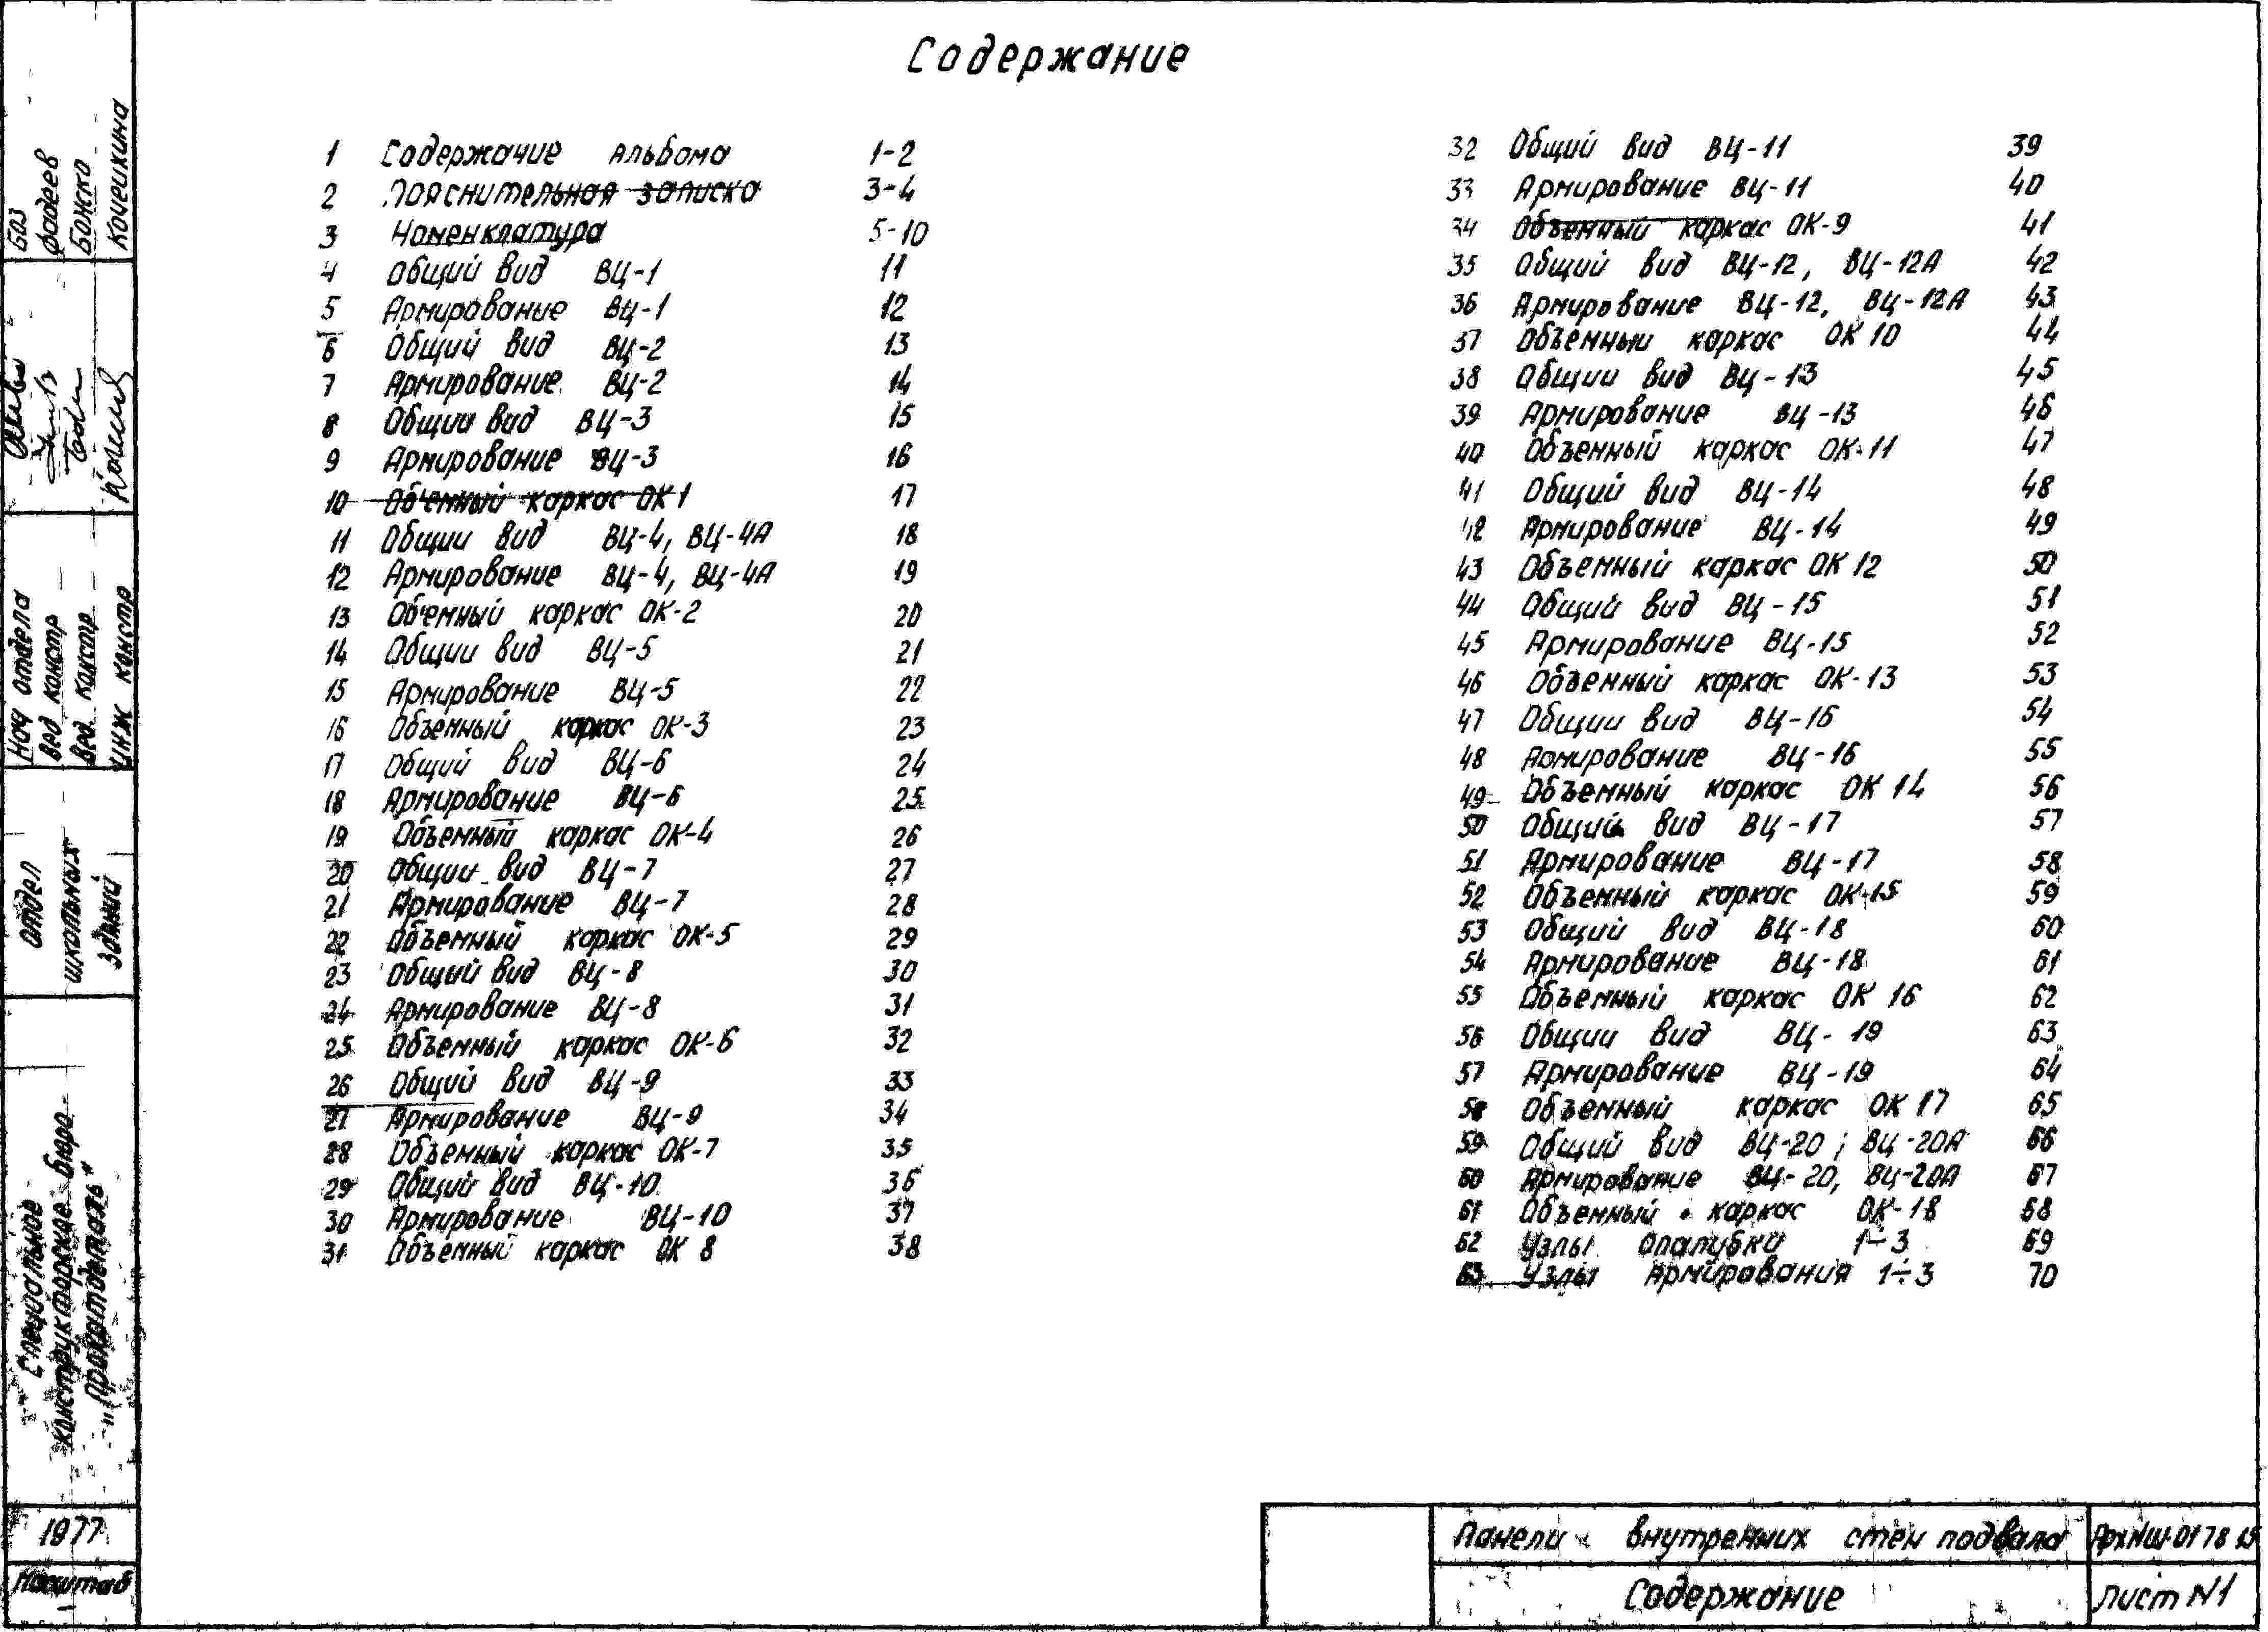 Содержание
1 Содержание альбома 1-2
2 Пояснительная записка 3-4
3 Номенклатура 5-10
4 Общий вид ВЦ-1 11
5 Армирование ВЦ-1 12
6 Общий вид ВЦ-2 13
7 Армирование ВЦ-2 14
8 Общий вид ВЦ-3 15
9 Армирование ВЦ-3 16
10 Об'емный каркас ОК1 17
11 Общий вид ВЦ-4, ВЦ-4А 18
12 Армирование ВЦ-4, ВЦ-4А 19
13 Об'емный каркас ОК-2 20
14 Общий вид ВЦ-5 21
15 Армирование ВЦ-5 22
16 Объемный каркас ОК-3 23
17 Общий вид ВЦ-6 24
18 Армирование ВЦ-6 25
19 Объемный каркас ОК-4 26
20 Общий вид ВЦ-7 27
21 Армирование ВЦ-7 28
22 Объемный каркас ОК-5 29
23 Общий вид ВЦ-8 30
24 Армирование ВЦ-8 31
25 Объемный каркас ОК-6 32
26 Общий вид ВЦ-9 33
27 Армирование ВЦ-9 34
28 Объемный каркас ОК-7 35
29 Общий вид ВЦ-10 36
30 Армирование ВЦ-10 37
31 Объемный каркас ОК 8 38
32 Общий вид ВЦ-11 39
33 Армирование ВЦ-11 40
34 Объемный каркас ОК-9 41
35 Общий вид ВЦ-12, ВЦ-12А 42
36 Армирование ВЦ-12, ВЦ-12А 43
37 Объемный каркас ОК 10 44
38 Общий вид ВЦ-13 45
39 Армирование ВЦ-13 46
40 Объемный каркас ОК-11 47
41 Общий вид ВЦ-14 48
42 Армирование ВЦ-14 49
43 Объемный каркас ОК 12 50
44 Общий вид ВЦ-15 51
45 Армирование ВЦ-15 52
46 Объемный каркас ОК-13 53
47 Общий вид ВЦ-16 54
48 Армирование ВЦ-16 55
49 Объемный каркас ОК 14 56
50 Общий вид ВЦ-17 57
51 Армирование ВЦ-17 58
52 Объемный каркас ОК-15 59
53 Общий вид ВЦ-18 60
54 Армирование ВЦ-18 61
55 Объемный каркас ОК 16 62
56 Общий вид ВЦ-19 63
57 Армирование ВЦ-19 64
58 Объемный каркас ОК 17 65
59 Общий вид ВЦ-20; ВЦ-20А 66
60 Армирование ВЦ-20, ВЦ-20А 67
61 Объемный каркас ОК-18 68
62 Узлы опалубки 1÷3 69
63 Узлы армирования 1÷3 70
Нач отдела БОЗ
Вед констр Фадеев
Вед. констр Божко
Инж констр Кочешкина
отдел
школьных
зданий
Специальное
конструкторское бюро
"Прокатдеталь"
1977
Масштаб
Панели внутренних стен подвала
Содержание
Лист N1